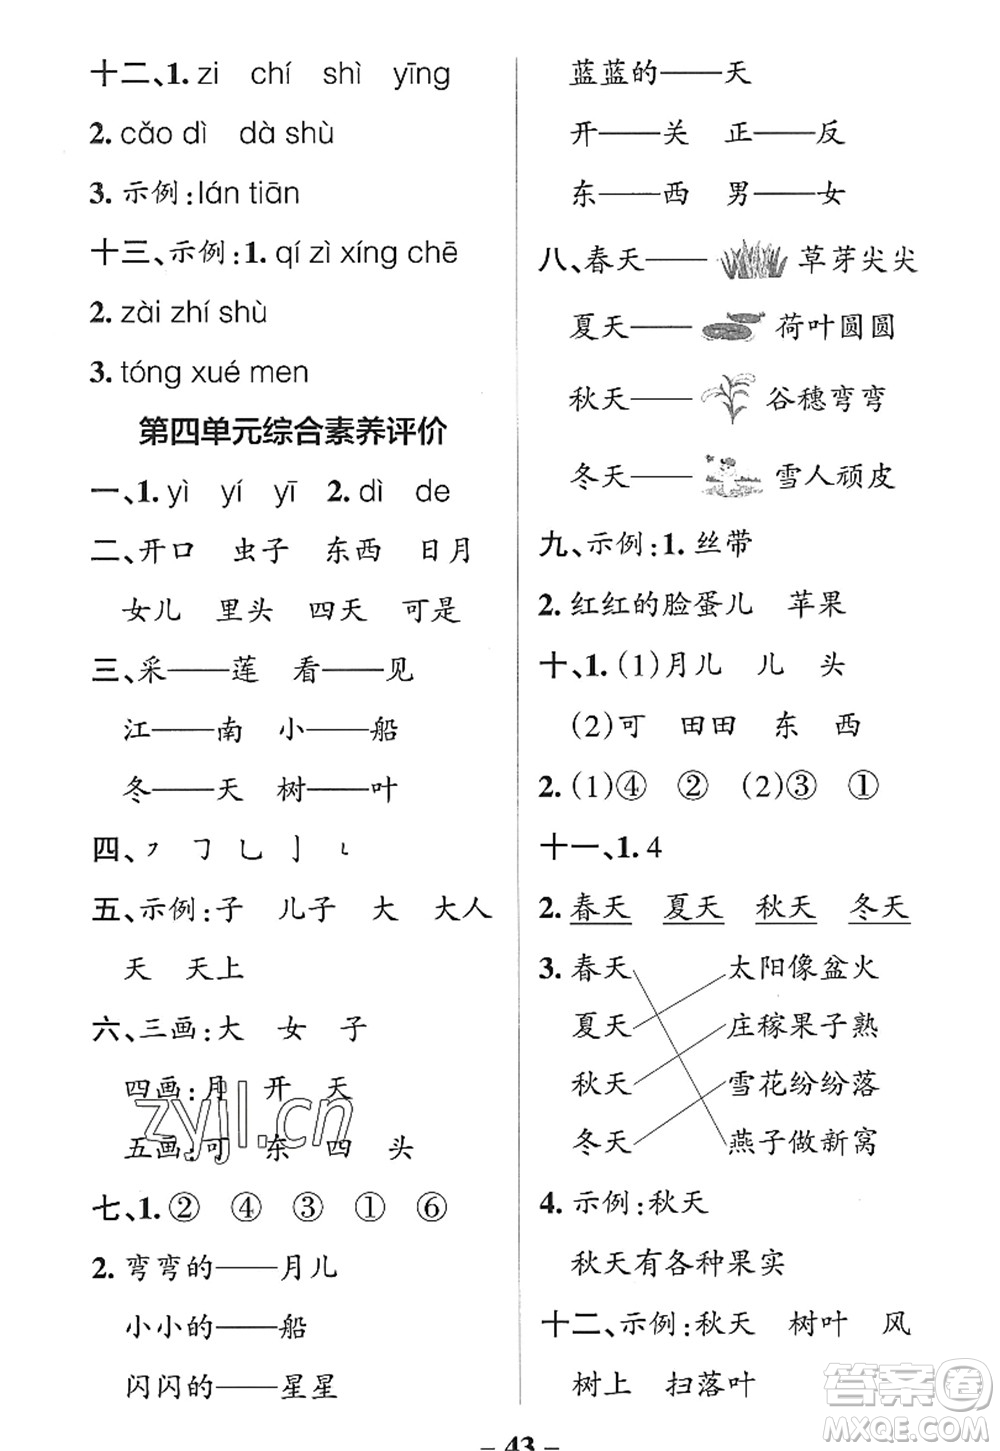 十二、1. zi chí shì yīng
2. cǎo dì dà shù
3. 示例:lán tiān
十三、示例:1. qí zì xíng chē
2. zài zhí shù
3. tóng xué men
第四单元综合素养评价
一、1. yì yí yī 2. dì de
二、开口 虫子 东西 日月
女儿 里头 四天 可是
三、采——莲 看——见
江——南 小——船
冬——天 树——叶
四、㇇ ㇆ 乚 亅 ㇙
五、示例:子 儿子 大 大人
天 天上
六、三画:大 女 子
四画:月 开 天
五画:可 东 四 头
七、1. ② ④ ③ ① ⑥
2. 弯弯的——月儿
小小的——船
闪闪的——星星
蓝蓝的——天
开——关 正——反
东——西 男——女
八、春天—— 草芽尖尖
夏天—— 荷叶圆圆
秋天—— 谷穗弯弯
冬天—— 雪人顽皮
九、示例:1. 丝带
2. 红红的脸蛋儿 苹果
十、1. (1)月儿 儿 头
(2)可 田田 东 西
2. (1)④ ② (2)③ ①
十一、1. 4
2. 春天 夏天 秋天 冬天
3. 春天 太阳像盆火
夏天 庄稼果子熟
秋天 雪花纷纷落
冬天 燕子做新窝
4. 示例:秋天
秋天有各种果实
十二、示例:秋天 树叶 风
树上 扫落叶
- 43 -
zyjl.cn
答案圈
MXQE.COM